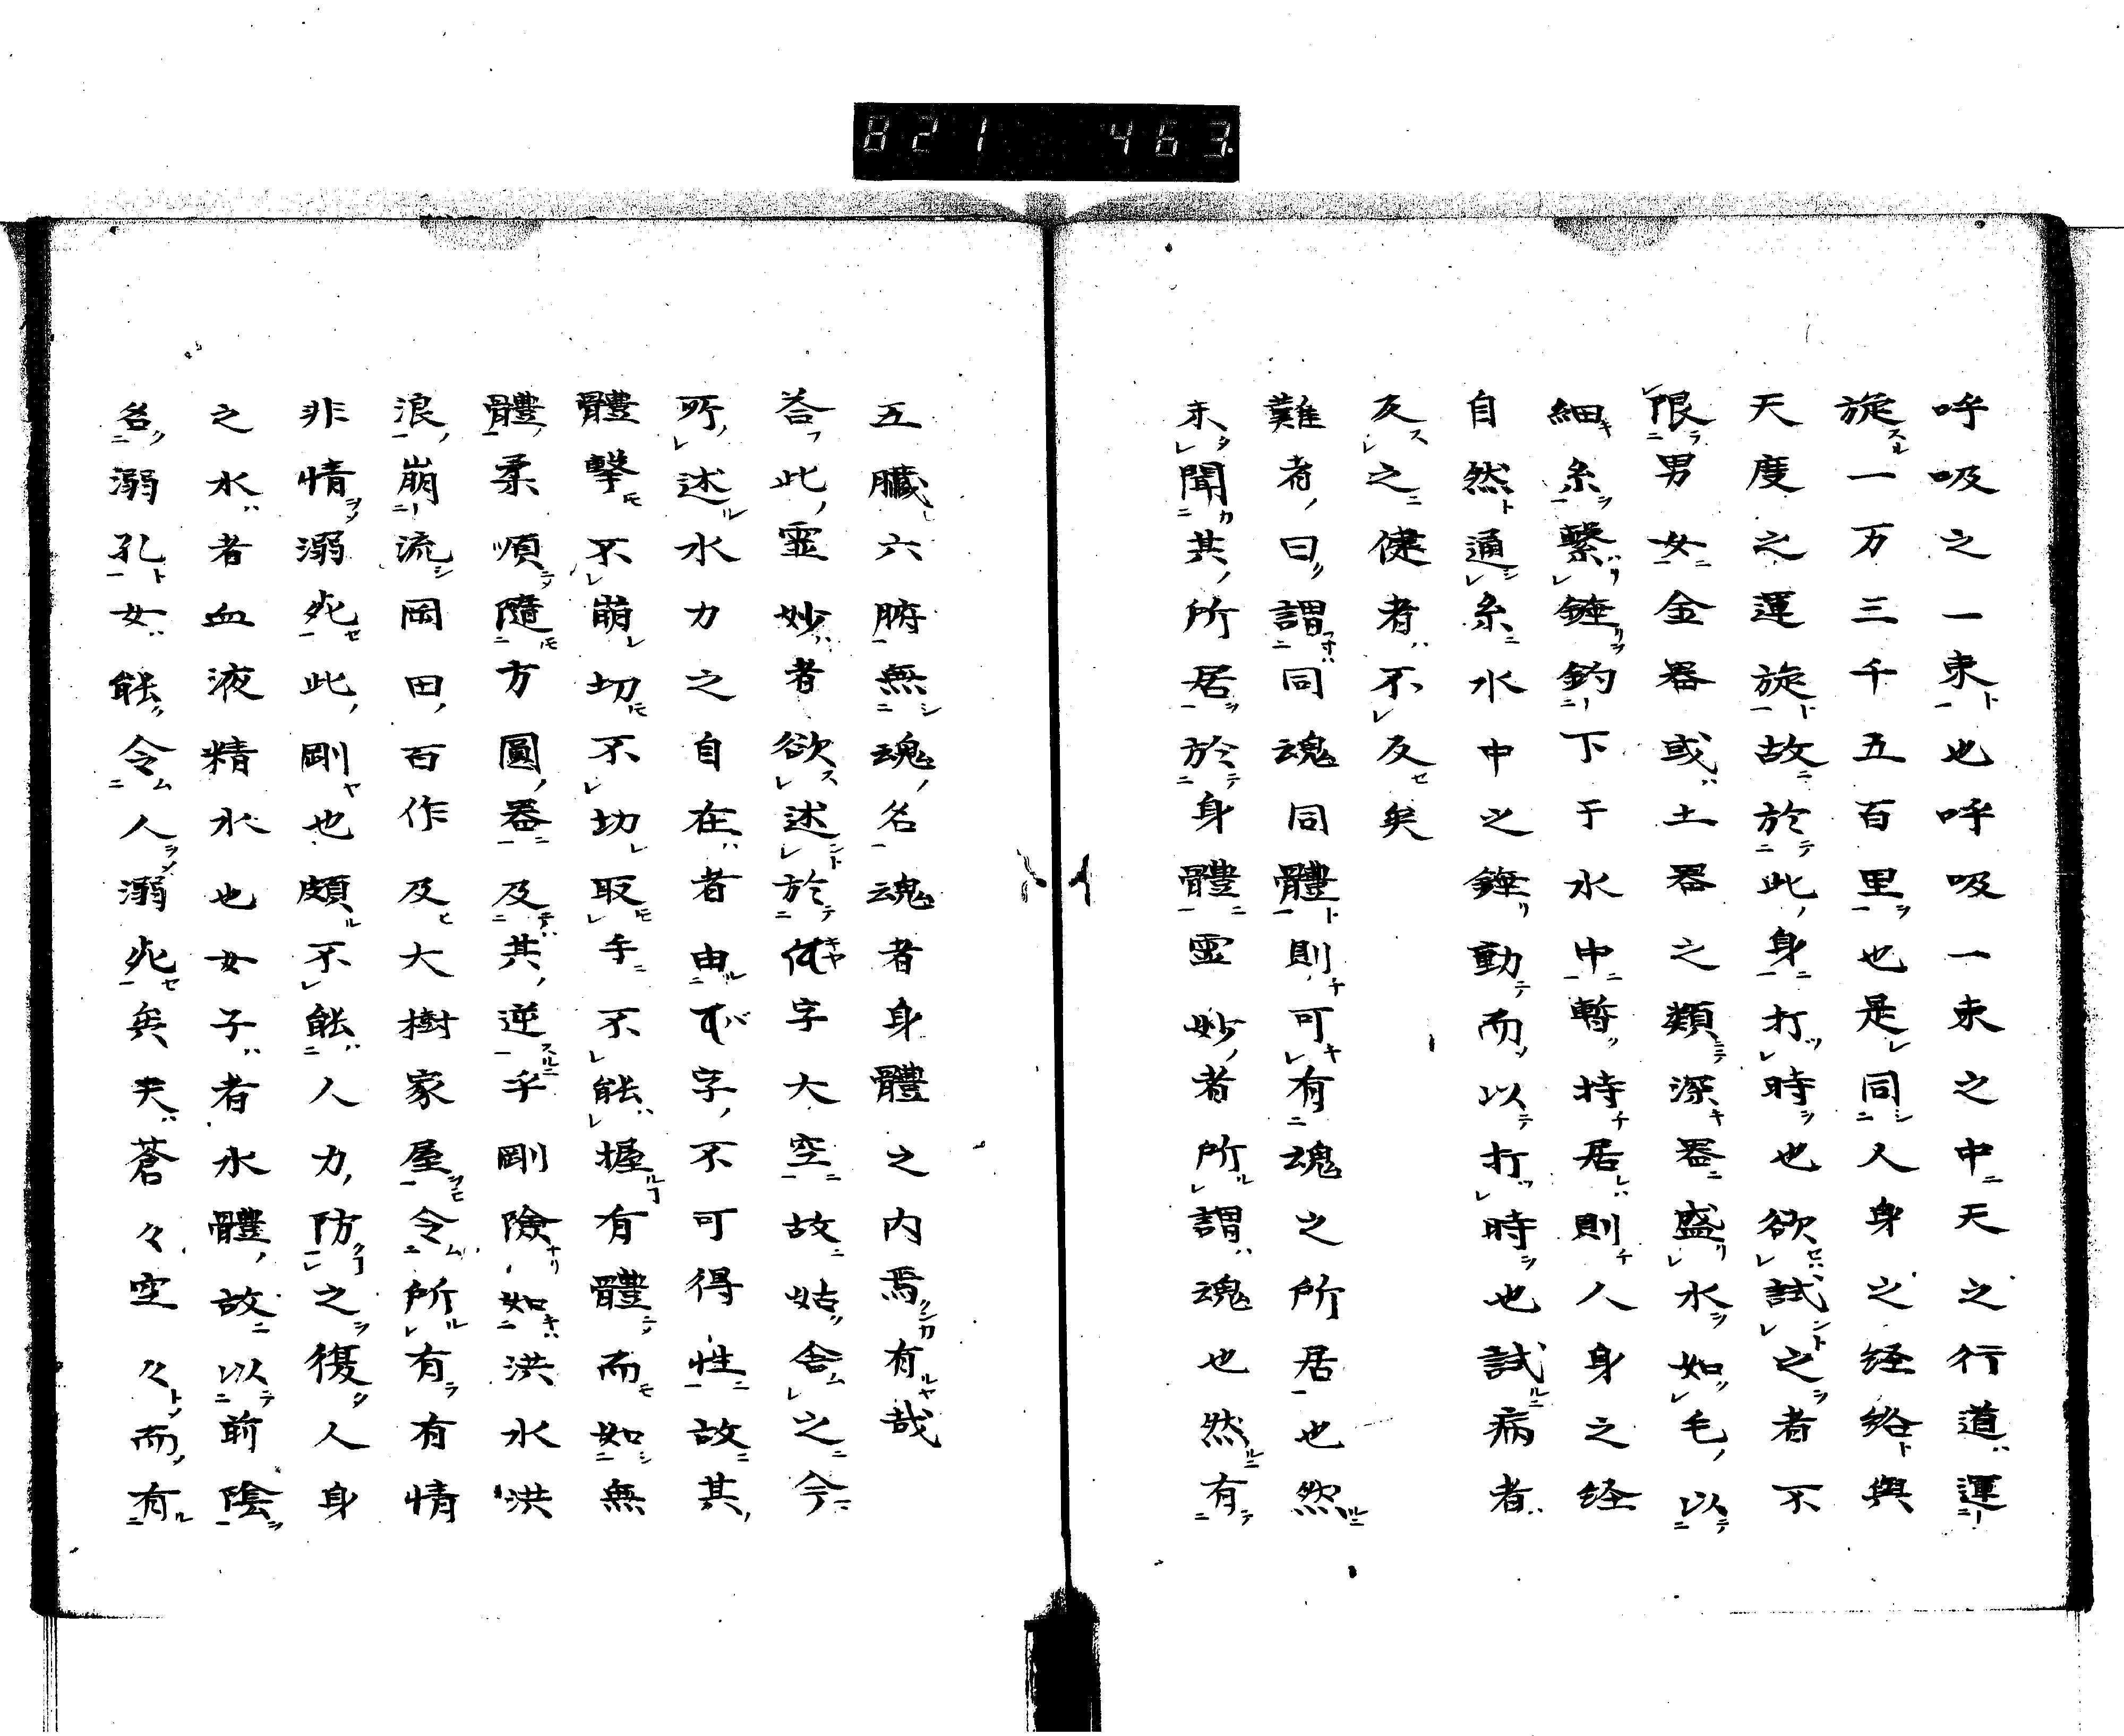 821 463.
呼吸之一束也呼吸一束之中天之行道運
旋一万三千五百里也是同人身之経絡與
天度之運旋故於此身打時也欲試之者不
限男女金器或土器之類深器盛水如毛以
細糸繋錘釣下于水中暫持居則人身之経
自然通糸水中之錘動而以打時也試病者
反之健者不反矣
難者曰謂同魂同體則可有魂之所居也然
未聞其所居於身體霊妙者所謂魂也然有
五臓六腑無魂名魂者身體之内焉有哉
答此霊妙者欲述於字大空故姑舎之今
所述水力之自在者由字不可得性故其
體撃不崩切不切取手不能握有體而如無
體柔順隨方圓器及其逆乎剛険如洪水洪
浪崩流岡田百作及大樹家屋令所有有情
非情溺死此剛也頗不能人力防之復人身
之水者血液精水也女子者水體故以前陰
名溺孔女能令人溺死矣夫蒼々空々而有